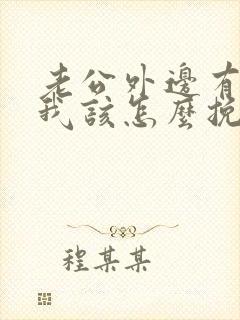 老公外邊有
我該怎麼挽
程某某